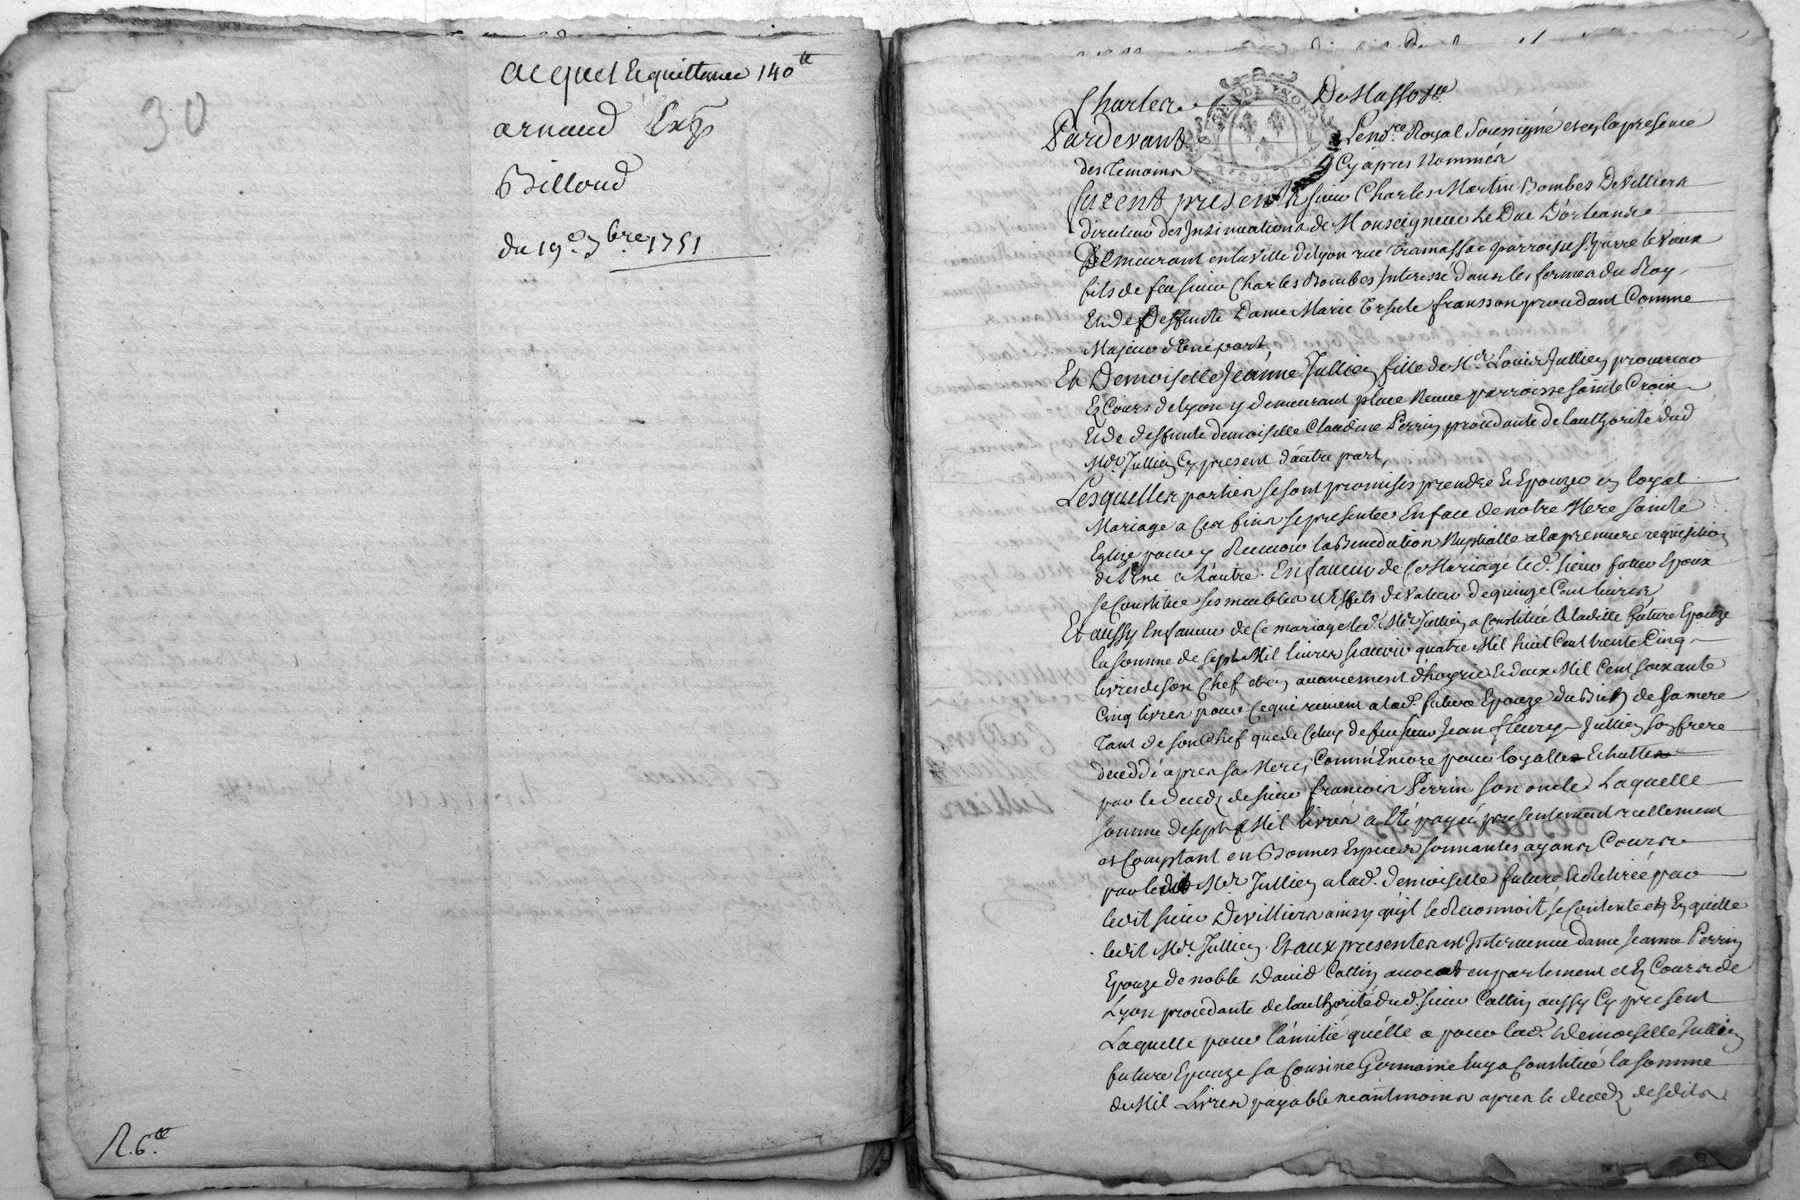 acquet Et quittance 140ᵗᵗ
30
arnaud
Billoud
du 19ᵉ 7bre 1751
R. 6ᵗᵗ
Charles
DeMasso
Pardevant Le noʳᵉ Royal Soussigné et en la presence
des temoins Cy apres Nommés
furent presents sieur Charles Martin Bombes Devilliers
directeur des Insinuations de Monseigneur Le Duc D'orleans
Demeurant en la ville de Lyon rue tramassac parroisse St pierre le vieux
fils de feu sieur Charles Bombes Interessé dans les fermes du Roy
Et de Deffunte Dame Marie Ursule fransson procedant Comme
Majeur d'une part,
Et Demoiselle Jeanne Jullien fille de Mᵉʳ Louis Jullien procureur
Es Cours de lyon y demeurant place Neuve parroisse sainte Croix
Et de deffunte demoiselle Claudine Perrin procedante de l'authorité dud
Mᵉʳ Jullien Cy present d'autre part,
Lesquelles parties se sont promises prendre Et Epouzer en loyal
Mariage a Ces fins se presenter En face de notre Mere sainte
Eglise pour y Recevoir la Benediction Nuptialle a la premiere requisition
de l'une a l'autre. En faveur de Ce Mariage led. sieur futur Epoux
se Constitue ses meubles et Effets de valeur de quinze Cent livres
Et aussy En faveur de Ce mariage led. Mᵉʳ Jullien a Constitué a ladite future Epouze
la somme de sept Mil livres scavoir quatre Mil huit Cent trente Cinq
livres de son Chef et en avancement d'hoyrie Et deux Mil Cent soixante
Cinq livres pour Ce qui revient a lad. future Epouze du Bien de sa mere
tant de son Chef que de Celuy de feu sieur Jean fleury Jullien son frere
deceddé apres sa Mere, Comm'Encore pour loyalle Echutte
par le deced de sieur francois Perrin son oncle Laquelle
somme de sept Mil livres a Eté payée presentement reellement
et Comptant en Bonnes Especes sonnantes ayant Cours
par ledit Mᵉʳ Jullien a lad. demoiselle future Et Retirée par
ledit sieur Devilliers ainsy qu'il le Reconnoit, se Contente et En quitte
ledit Mᵉʳ Jullien. Et aux presentes est Intervenue dame Jeanne Perrin
Epouze de noble David Cattin avocat en parlement et Es Cours de
Lyon procedante de l'authorité dud. sieur Cattin aussy Cy present
Laquelle pour l'amitié qu'elle a pour lad. Demoiselle Jullien
future Epouze sa Cousine Germaine luy a Constitué la somme
de Mil Livres payable neantmoins apres le deced desdits